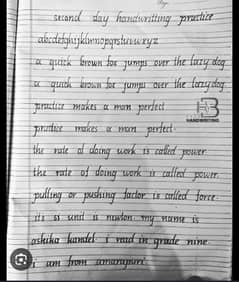 second day handwriting practice
abcdefghijklmnopqrstuvwxyz
a quick brown fox jumps over the lazy dog
a quick brown fox jumps over the lazy dog.
practice makes a man perfect
HB
HANDWRITING
practice makes a man perfect.
the rate of doing work is called power.
the rate of doing work is called power.
pulling or pushing factor is called force.
it's si unit is newton my name is
ashika kandel i read in grade nine.
i am from